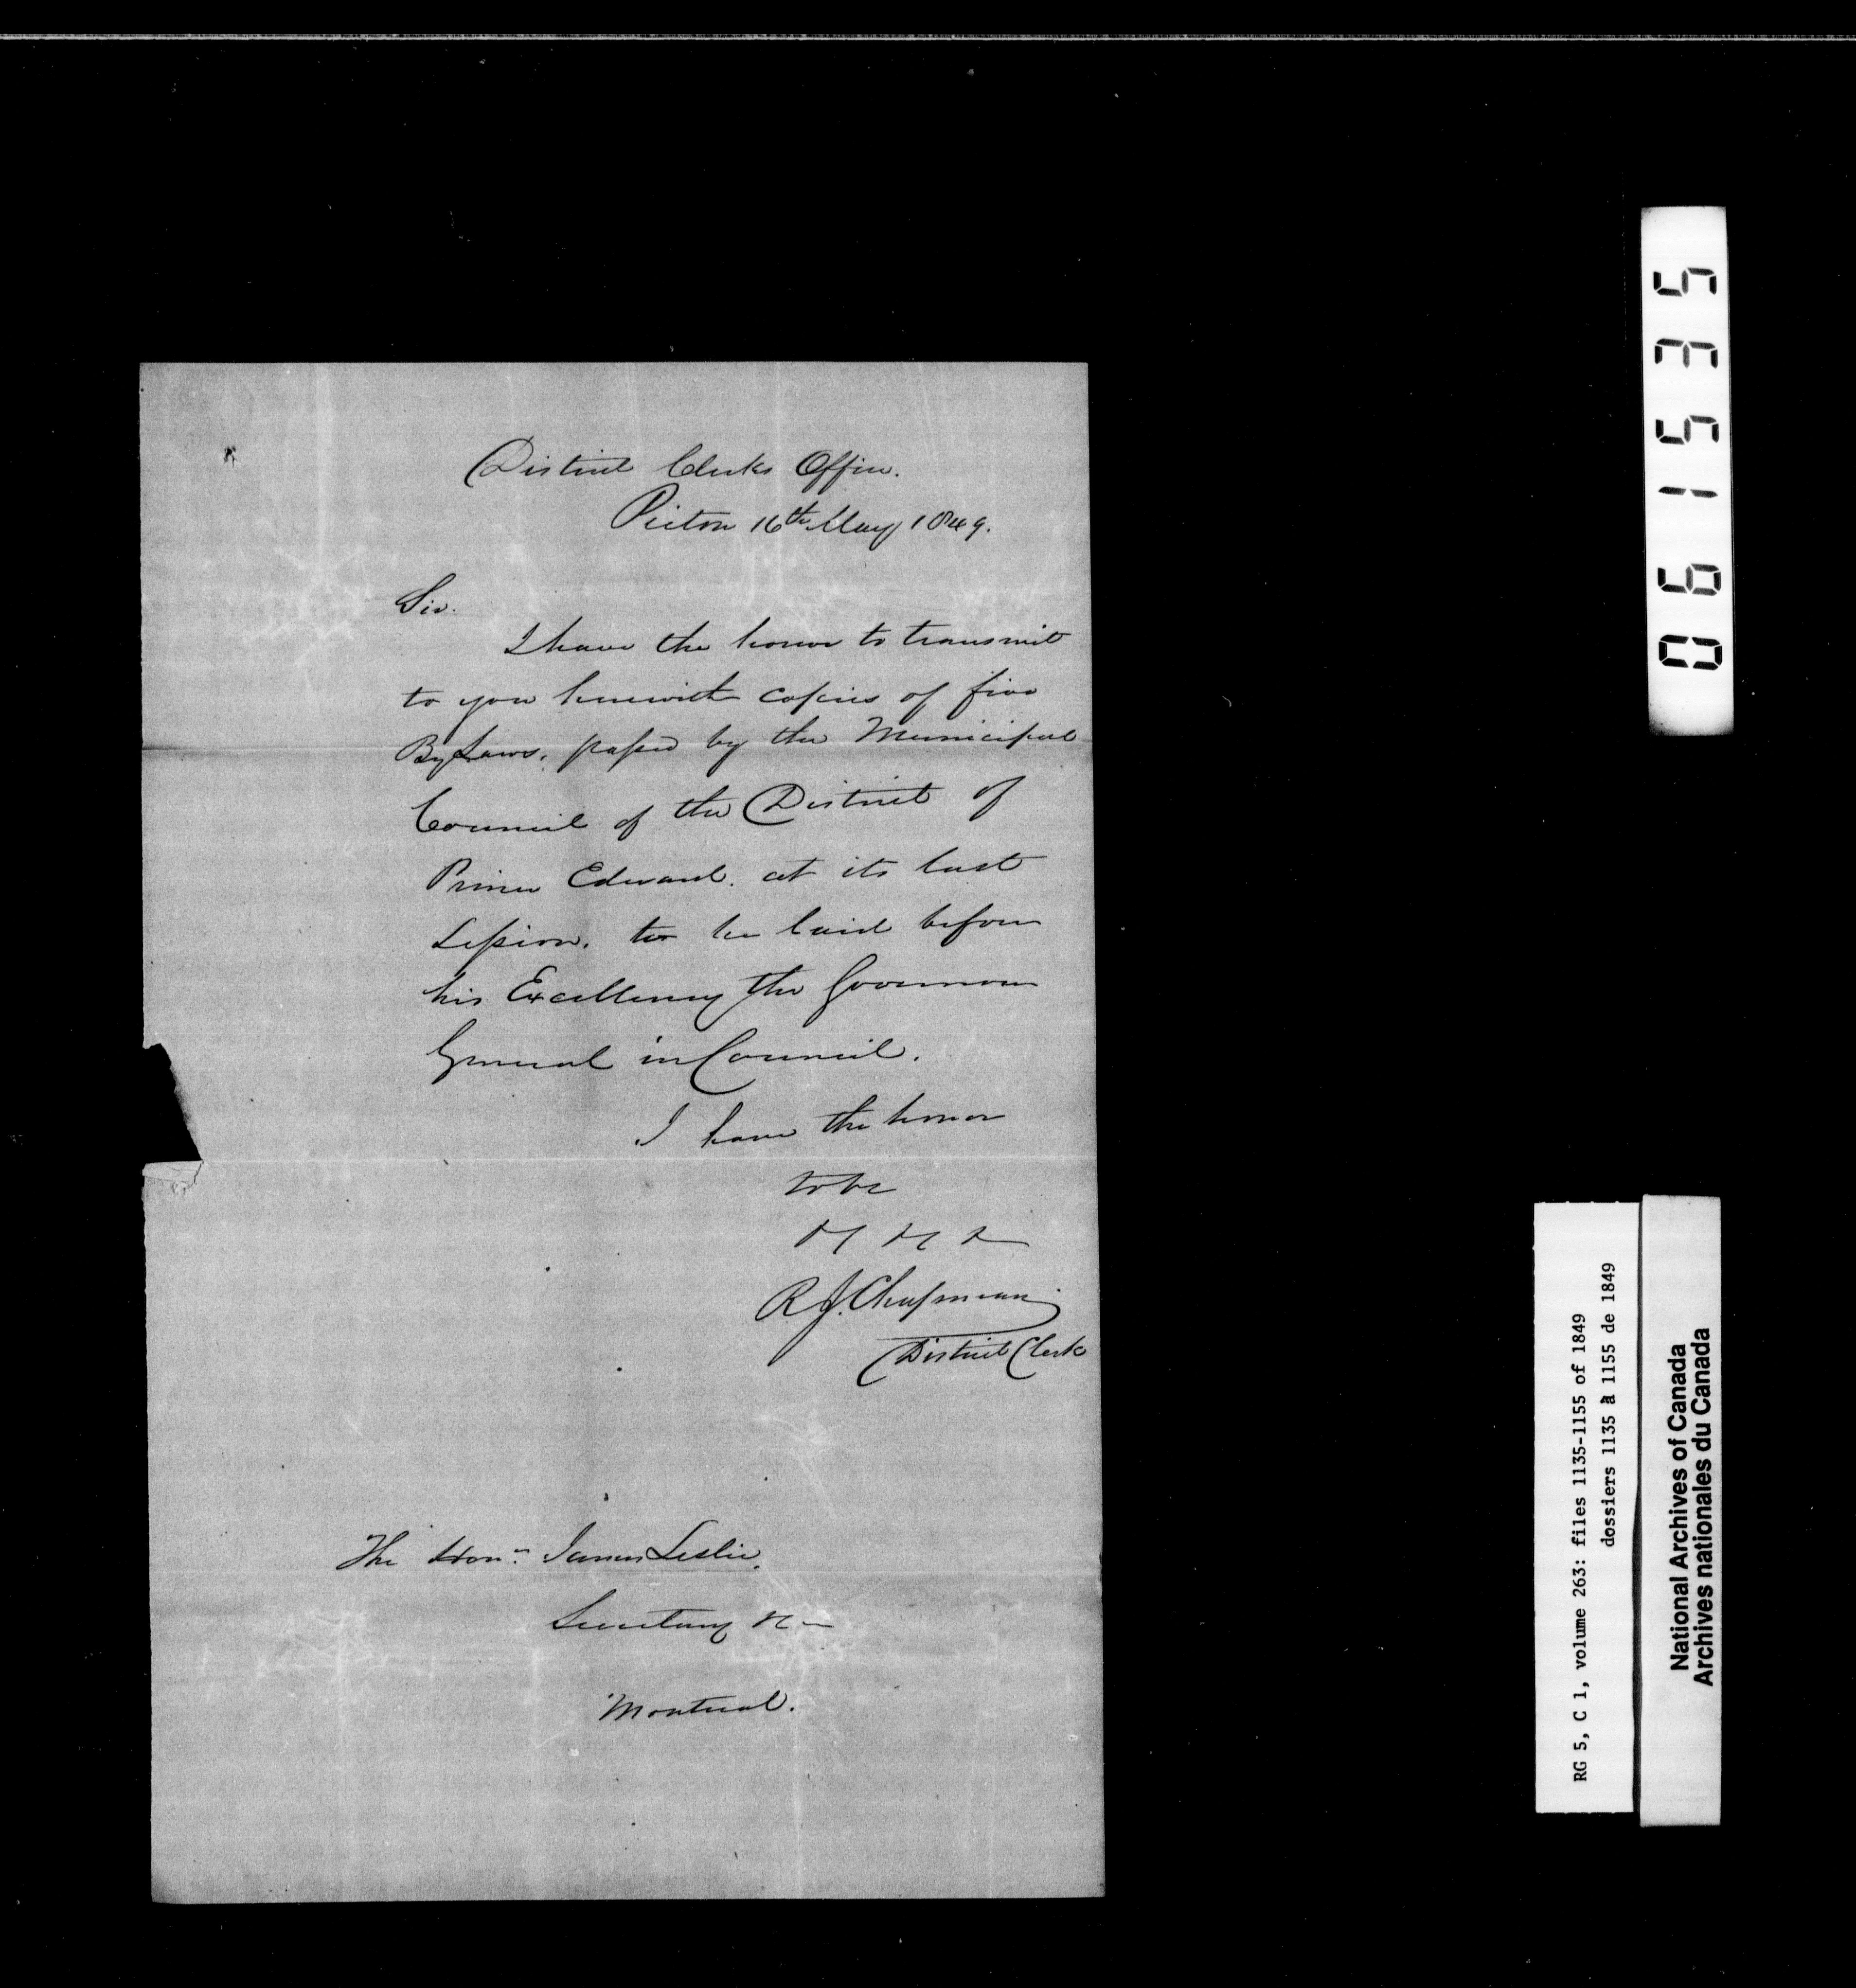 District Clerks Office.
Picton 16th May 1849.
Sir.
I have the honor to transmit
to you herewith copies of five
By Laws, passed by the Municipal
Council of the District of
Prince Edward. at its last
Session. to be laid before
his Excellency the Governor
General in Council.
I have the honor
to be
&c &c &c
R J. Chapman
District Clerk
The Hon. James Leslie,
Secretary &c
Montreal.
061535
RG 5, C 1, volume 263: files 1135-1155 of 1849
dossiers 1135 à 1155 de 1849
National Archives of Canada
Archives nationales du Canada